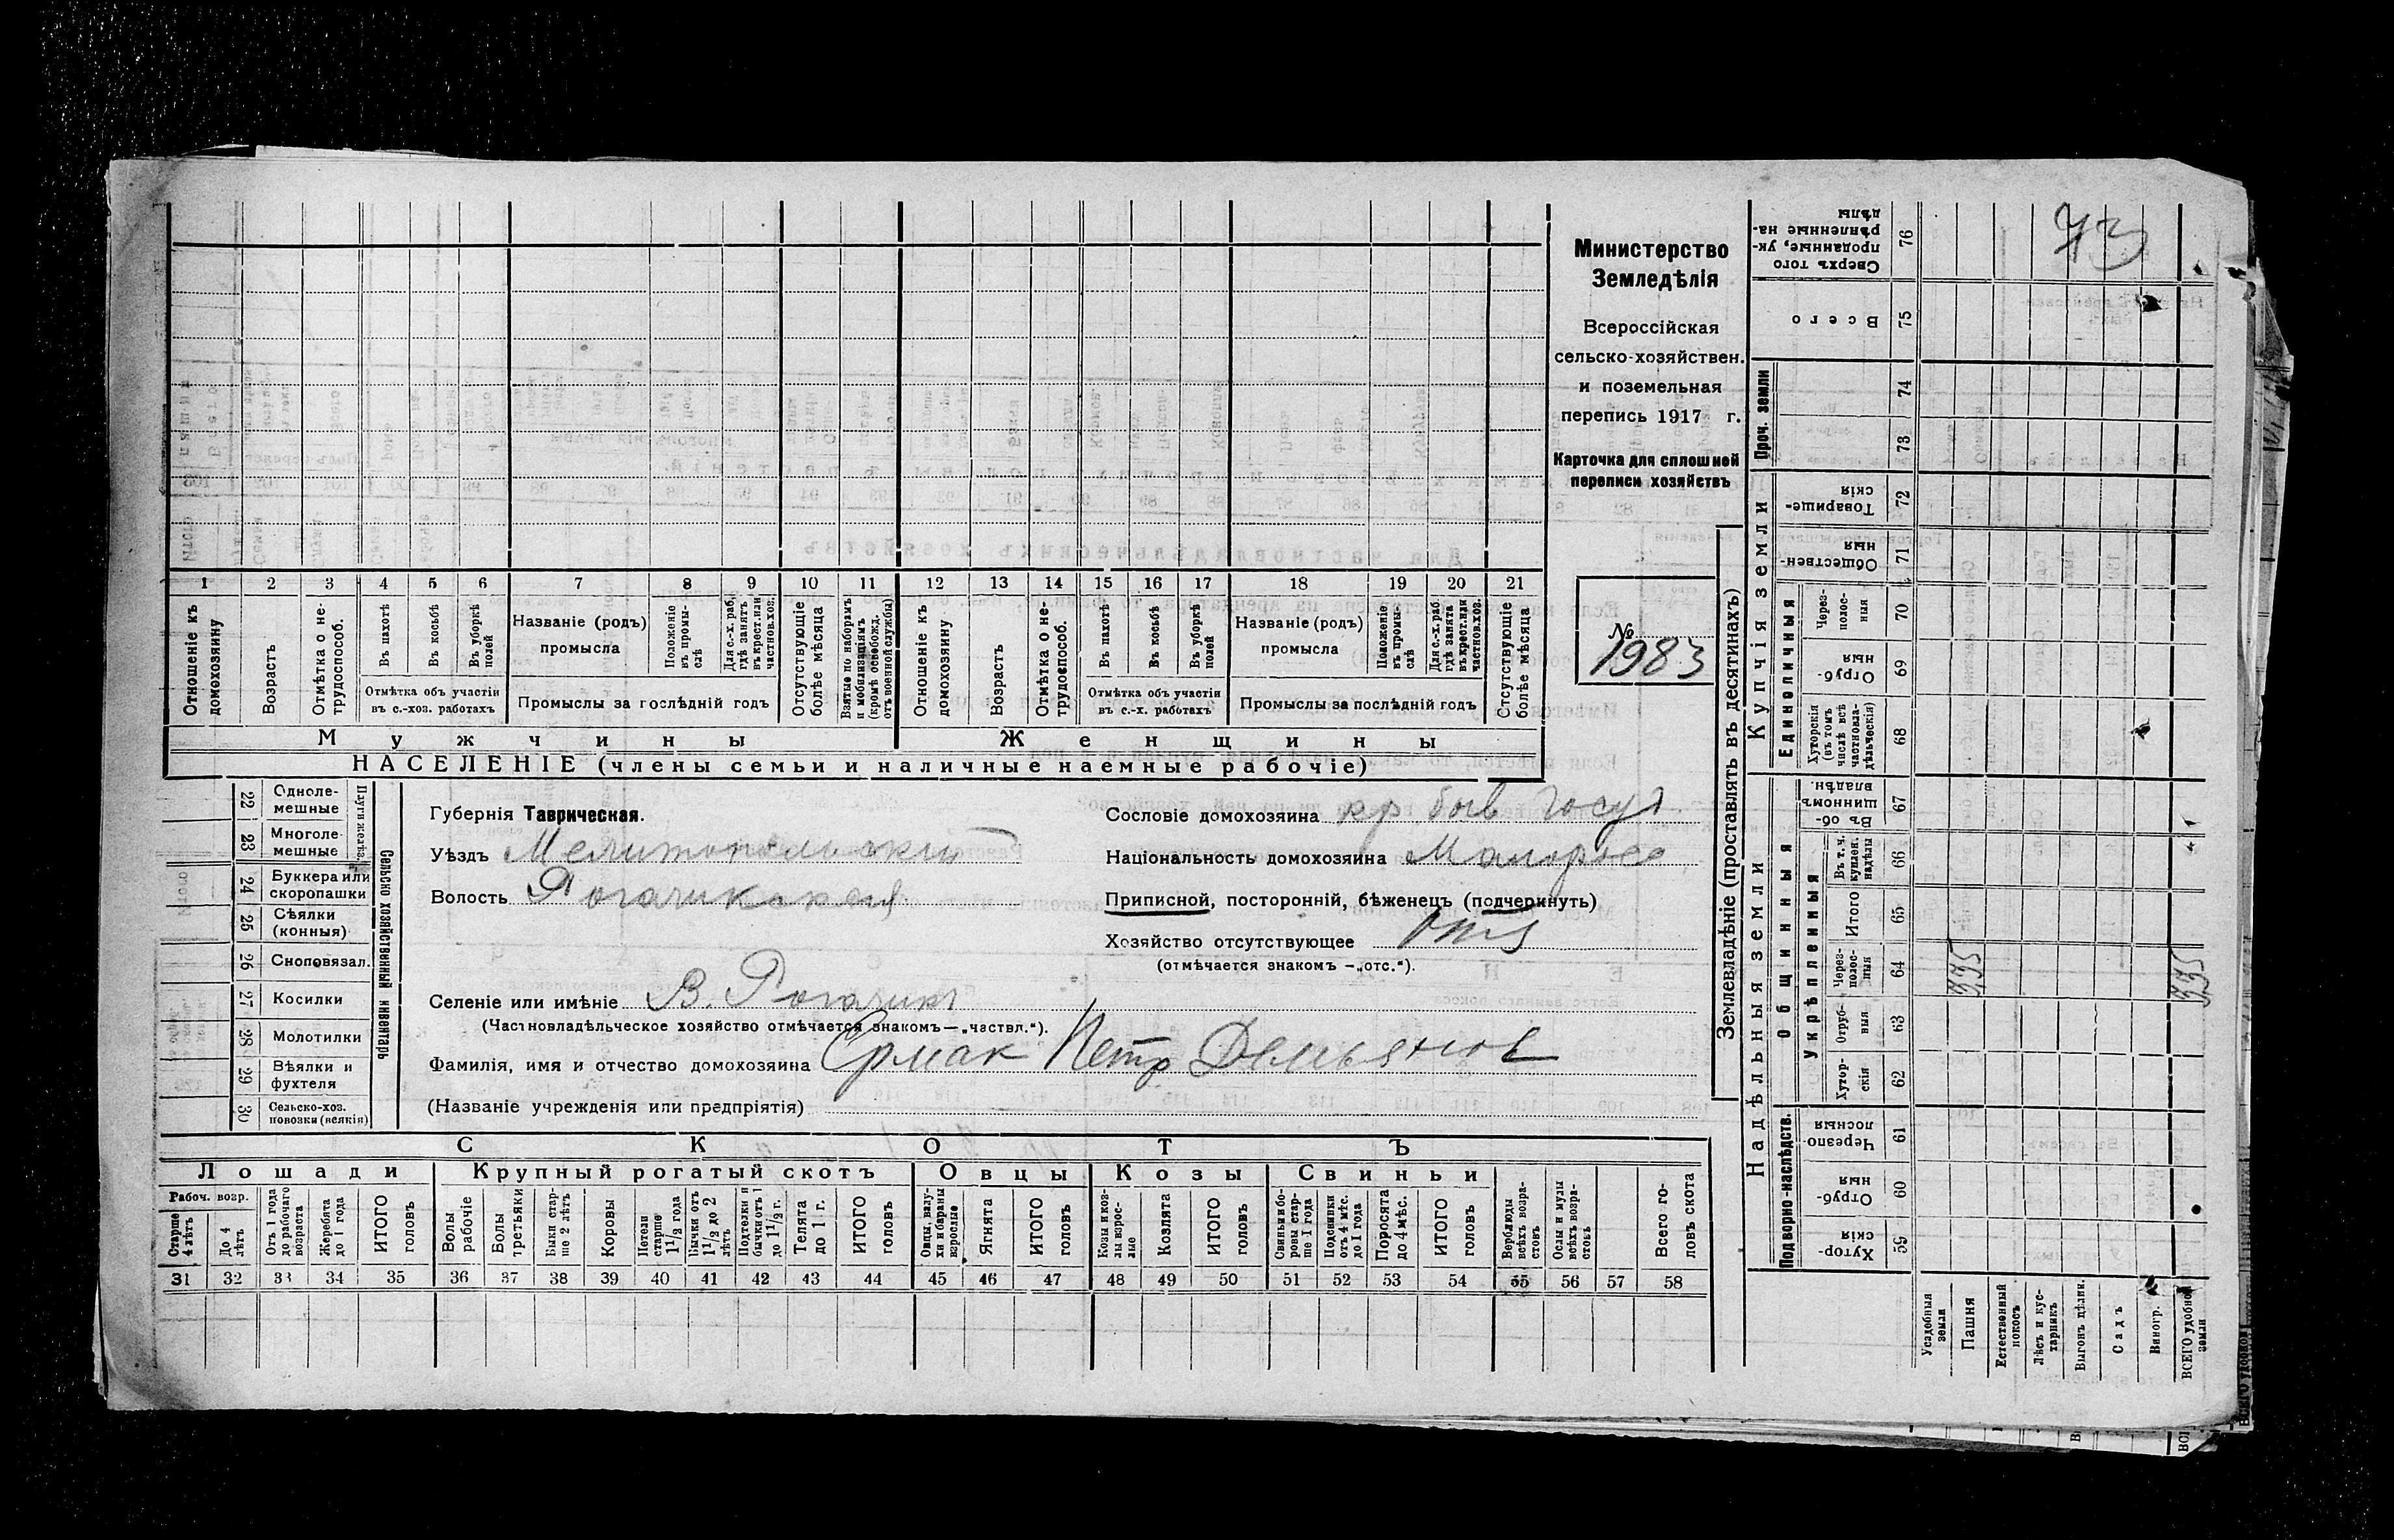 73
Министерство
Земледѣлія
Всероссійская
сельско-хозяйствен.
и поземельная
перепись 1917 г.
Карточка для сплошной
переписи хозяйствъ
№
1983
1 2 3 4 5 6 7 8 9 10 11 12 13 14 15 16 17 18 19 20 21
Отношеніе къ домохозяину
Возрастъ
Отмѣтка о не-трудоспособ.
Въ пахотѣ
Въ косьбѣ
Въ уборкѣ полей
Отмѣтка объ участіи въ с.-хоз. работахъ
Названіе (родъ) промысла
Положеніе въ промы-слѣ
Для с.-х. раб. гдѣ занятъ въ крест. или частнов. хоз.
Промыслы за послѣдній годъ
Отсутствующіе болѣе мѣсяца
Взятые по наборамъ и мобилизаціямъ (кромѣ освобожд. отъ военной службы)
Отношеніе къ домохозяину
Возрастъ
Отмѣтка о не-трудоспособ.
Въ пахотѣ
Въ косьбѣ
Въ уборкѣ полей
Отмѣтка объ участіи въ с.-х. работахъ
Названіе (родъ) промысла
Положеніе въ промы-слѣ
Для с.-х. раб. гдѣ занята въ крест. или частнов. хоз.
Промыслы за послѣдній годъ
Отсутствующіе болѣе мѣсяца
Мужчины Женщины
НАСЕЛЕНІЕ (члены семьи и наличные наемные рабочіе)
22 Одноле-мешные
23 Многоле-мешные
Плуги желѣз.
24 Буккера или скоропашки
25 Сѣялки (конныя)
26 Сноповязал.
27 Косилки
28 Молотилки
29 Вѣялки и фухтеля
30 Сельско-хоз. повозки (всякія)
Сельско хозяйственный инвентарь
Губернія Таврическая.
Уѣздъ Мелитопольскій
Волость Рогачикская
Селеніе или имѣніе В. Рогачикъ
(Частновладѣльческое хозяйство отмѣчается знакомъ — „частвл.“).
Фамилія, имя и отчество домохозяина Ермак Петр Демьянов
(Названіе учрежденія или предпріятія)
Сословіе домохозяина кр быв госуд
Національность домохозяина Малоросс
Приписной, посторонній, бѣженецъ (подчеркнуть)
Хозяйство отсутствующее отс
(отмѣчается знакомъ — „отс.“).
СКОТЪ
Лошади Крупный рогатый скотъ Овцы Козы Свиньи
Рабоч. возр.
Старше 4 лѣтъ
До 4 лѣтъ
Отъ 1 года до рабочаго возраста
Жеребята до 1 года
ИТОГО головъ
Волы рабочіе
Волы третьяки
Быки стар-ше 2 лѣтъ
Коровы
Нетели старше 1 1/2 года
Бычки отъ 1 1/2 до 2 лѣтъ
Подтелки и бычки отъ 1 до 1 1/2 г.
Телята до 1 г.
ИТОГО головъ
Овцы, валу-хи и бараны взрослые
Ягнята
ИТОГО головъ
Козы и коз-лы взрос-лые
Козлята
ИТОГО головъ
Свиньи и бо-ровы стар-ше 1 года
Подсвинки отъ 4 мѣс. до 1 года
Поросята до 4 мѣс.
ИТОГО головъ
Верблюды всѣхъ возра-стовъ
Ослы и мулы всѣхъ возра-стовъ
Всего го-ловъ скота
31 32 33 34 35 36 37 38 39 40 41 42 43 44 45 46 47 48 49 50 51 52 53 54 55 56 57 58
Землевладѣніе (проставлять въ десятинахъ)
Надѣльныя земли Купчія земли
Подворно-наслѣдств.
Общинныя
Укрѣпленныя
Единоличныя
Проч. земли
59 Хутор-скія
60 Отруб-ныя
61 Черезпо-лосныя
62 Хутор-скія
63 Отруб-ныя
64 Черезполос-ныя
65 Итого
66 Въ т. ч. куплен. надѣлы
67 Въ об-щинномъ владѣн.
68 Хуторскія (въ томъ числѣ всѣ частновла-дѣльческія)
69 Отруб-ныя
70 Черезполос-ныя
71 Обществен-ныя
72 Товарище-скія
73
74
75 Всего
76 Сверхъ того проданные, ук-рѣпленные на-дѣлы
Усадебныя земли
Пашня
Естественный покосъ
Лѣсъ и кус-тарникъ
Выгонъ цѣлин.
Садъ
Виногр.
ВСЕГО удобной земли